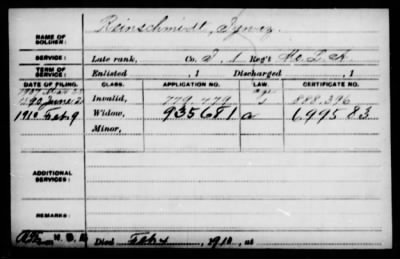 NAME OF SOLDIER: Reinschmidt, Ignaz.
SERVICE: Late rank, Co. I, 1 Reg't Mo. L. A.
TERM OF SERVICE: Enlisted , 1 Discharged , 1
DATE OF FILING. CLASS. APPLICATION NO. LAW. CERTIFICATE NO.
age
1890 June 2 Invalid, 779.779 888.396
1910 Feb 9 Widow, 935681 a 699583
Minor,
ADDITIONAL SERVICES:
REMARKS:
Died Feb 1, 1910, at